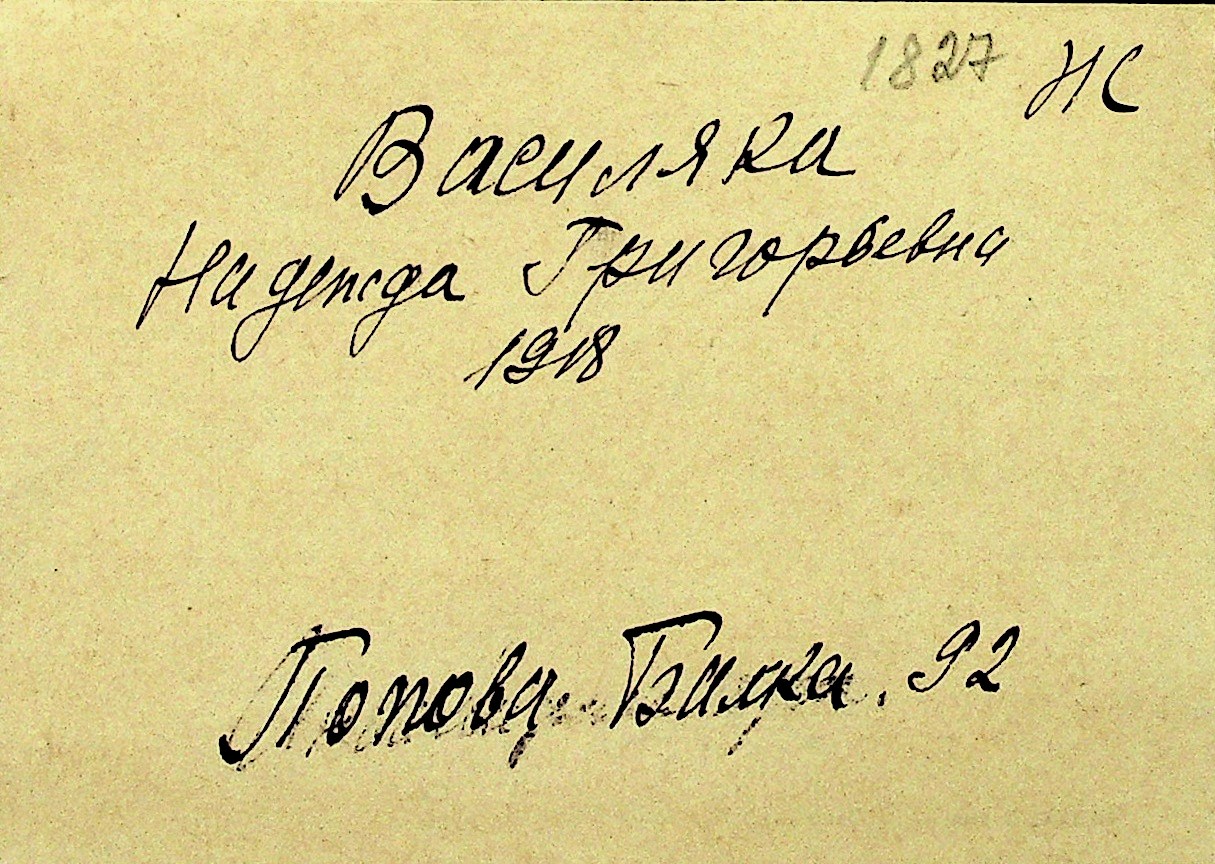 1827 НС
Василяка
Надежда Григорьевна
1918
Попова Балка. 92